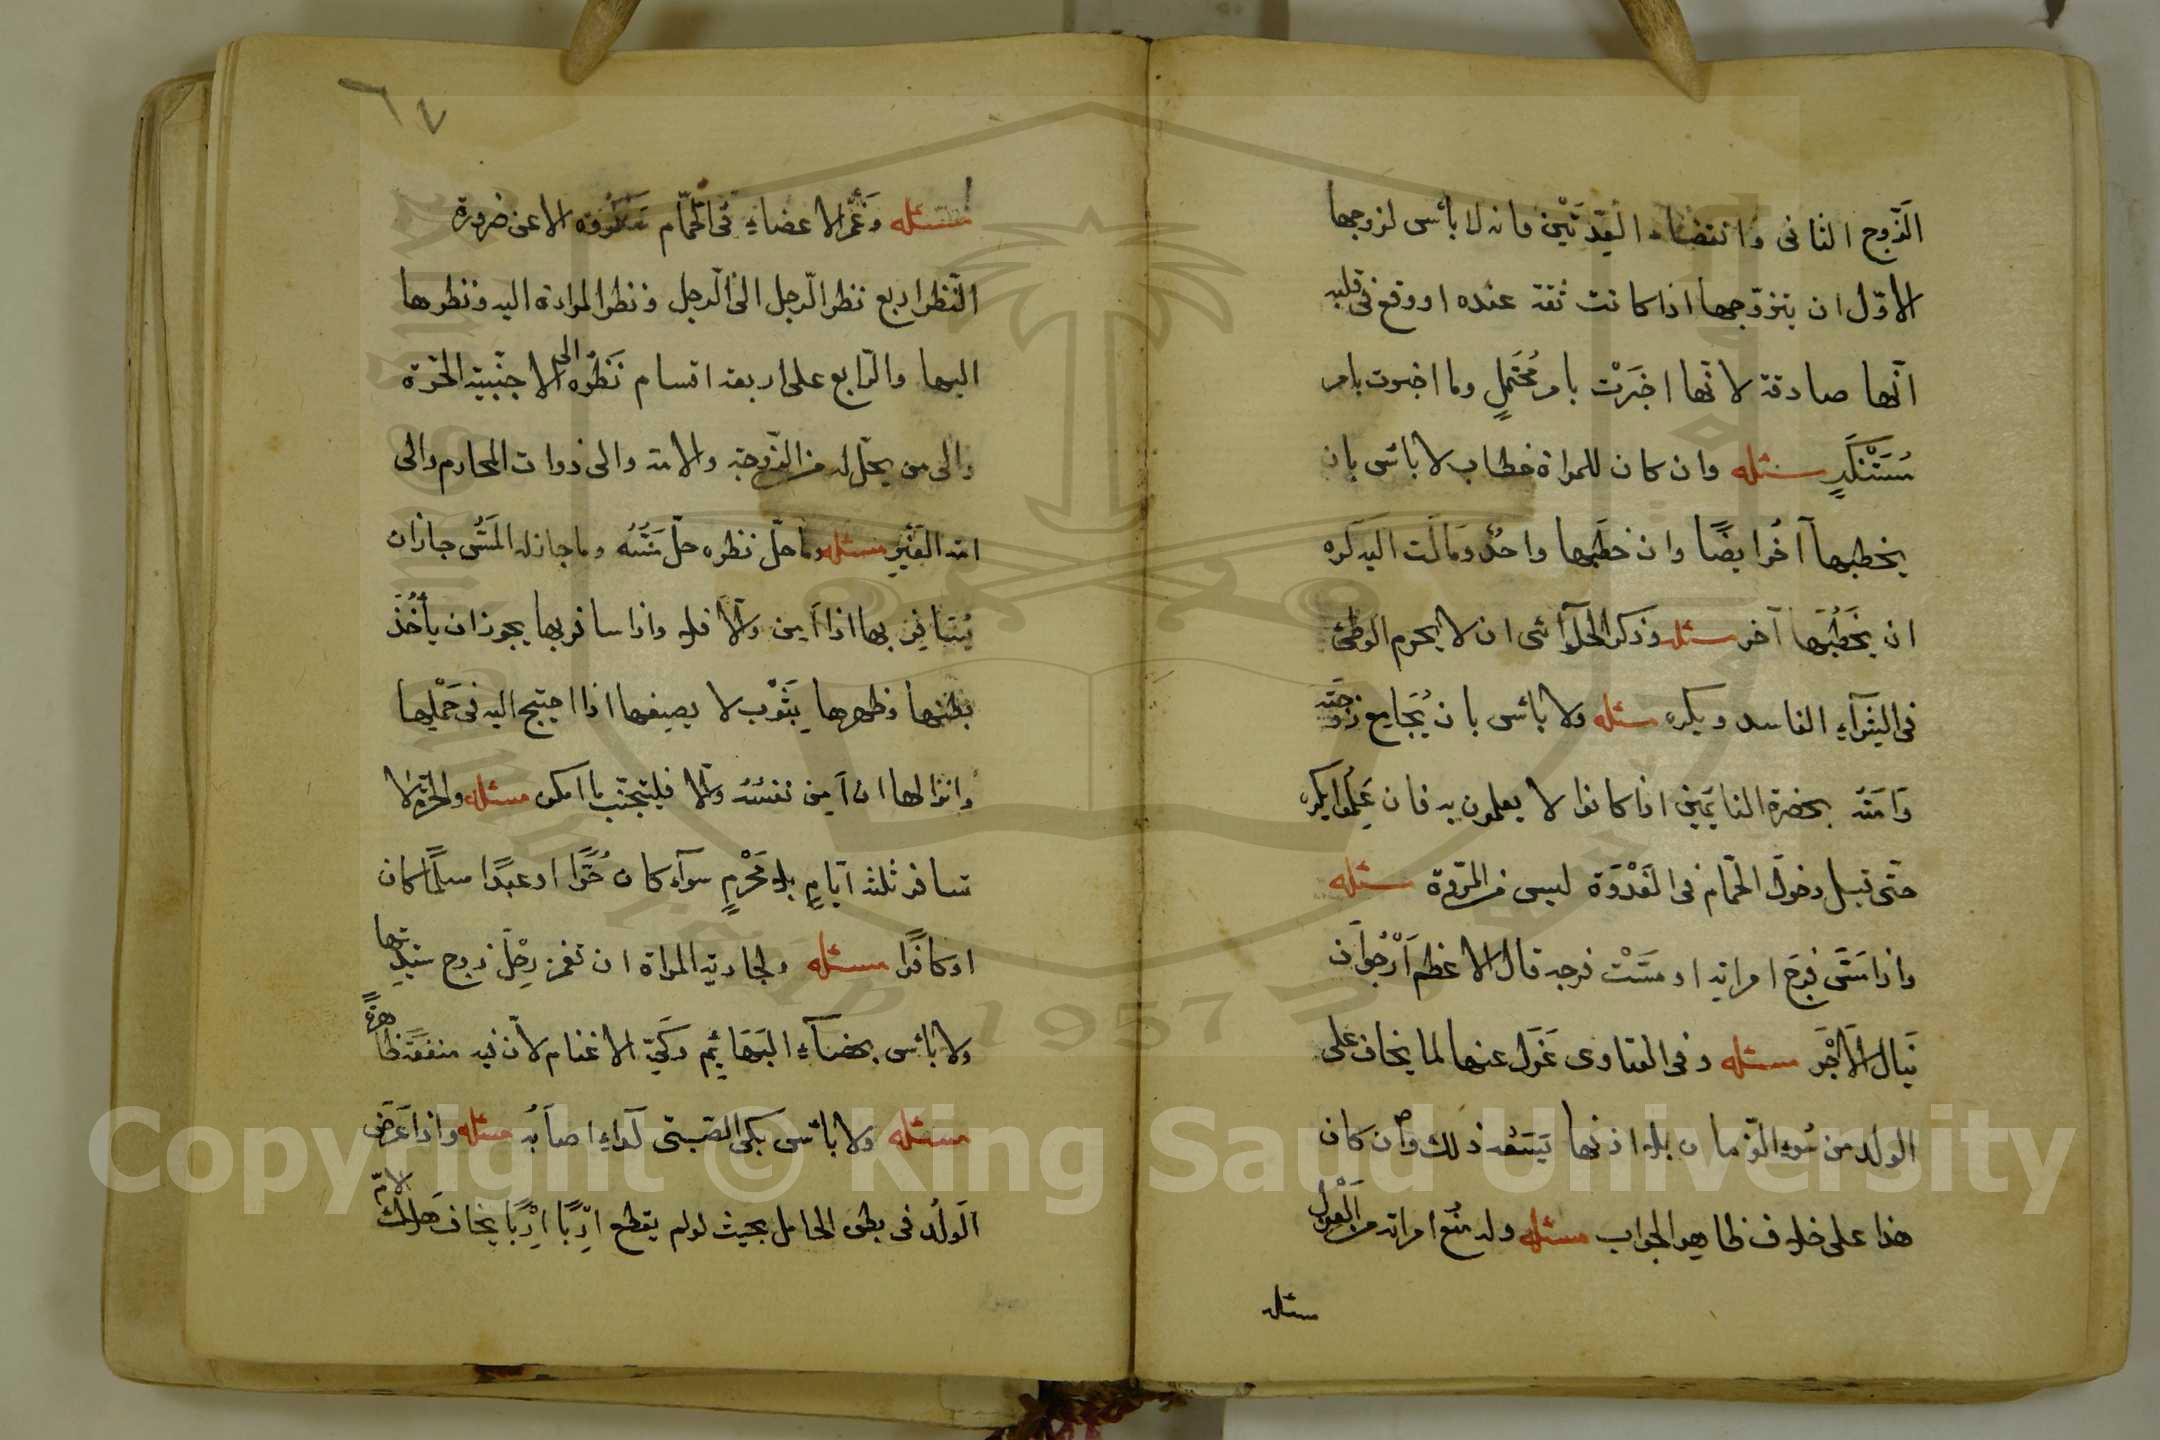 الزّوج الثانى وانقضاء العِدّتَيْن فانه لا بأس لزوجها
الاوّل ان يتزوّجها اذا كانت ثقة عنده او وقع فى قلبه
انّها صادقة لانّها اخبَرَتْ بامر مُحْتَمِلٍ وما اخبرت بامر
مُسْتَنْكَرٍ مسئله وان كان للمراة خطاب لا بأس بان
يخطبها آخر ايضًا وان خطبها واحدٌ ومالت اليه كره
ان يَخْطُبَها آخر مسئله وذكر الحلوائى ان لا يحرم الوطئ
فى الشِرَآءِ الفاسد ويكره مسئله ولا بأس بان يُجَامِع زوجَتَه
وَامَتَه بحضرة النائِمِين اذا كانوا لا يعلمون به فان عَلِمُوا يكره
حتّى قيل دخول الحمّام فى الغَدْوَة ليس من المروّة مسئله
واذا مَسَّ فرجَ امراته او مَسَّتْ فرجه قال الاعظم اَرْجُو اَن
يَنالا الاَجْرَ مسئله وفى الفتاوى عَزَل عنها لما يخاف على
الولد من سُوءِ الزّمان بلا اذنها يَسَعُه ذلك وان كان
هذا على خلاف ظاهر الجواب مسئله وله منع امراته من العَزْل
مسئله
٦٧
مسئله وغَمْزُ الاعضاءِ فى الحمّام مَكْرُوه الا عن ضرورة
النّظر اربع نظر الرّجل الى الرّجل ونظر المراة اليه ونظرها
اليها والرّابع على اربعة اقسام نَظَرُه الى الاجنبيّة الحُرّة
والى من يحلّ له من الزّوجة والامة والى ذوات المحارم والى
امة الغَيْرِ مسئله وما حلّ نظره حلّ مَسُّه وما جاز له المَسُّ جاز ان
يُسَافِر بها اذا اَمِنَ والّا فلا واذا سافر بها يجوز ان يأخُذَ
بطنها وظهرها بِثَوْب لا يصيفها اذا احتيج اليه فى حَمْلِها
وانزالها ان اَمِنَ نفسَه والّا فليتجنّب ما امكن مسئله والحُرّة لا
تسافر ثلثة ايّامٍ بلا مَحْرَمٍ سَوآء كان حُرًّا او عبدًا مسلمًا كان
او كافرًا مسئله ولجارية المراة ان تغمز رِجْل زوج سيّدتِها
ولا بأس بخصآءِ البَهائِم وكَىّ الاغنام لانّ فيه منفعَةً ظاهرةً
مسئله ولا بأس بكىّ الصّبىّ لداءٍ اصابَه مسئله واذا عَرَضَ
الولَدُ فى بطن الحامل بحيث لو لم يقطع اِرْبًا اِرْبًا يخاف هَلاك الامّ
Copyright © King Saud University
1957